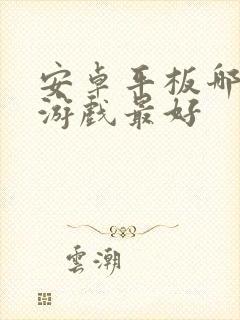 安卓平板哪
游戏最好
雲潮